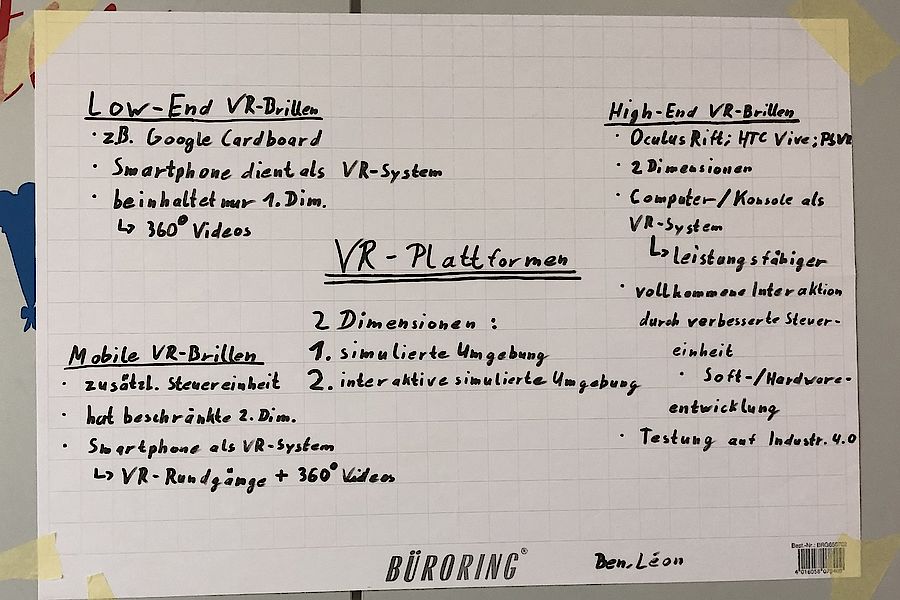 Low-End VR-Brillen
· zB. Google Cardboard
· Smartphone dient als VR-System
· beinhaltet nur 1. Dim.
↳ 360° Videos
High-End VR-Brillen
· Oculus Rift; HTC Vive; PSVR
· 2 Dimensionen
· Computer/Konsole als
VR-System
↳ leistungsfähiger
· vollkommene Interaktion
durch verbesserte Steuer-
einheit
· Soft-/Hardware-
entwicklung
· Testung auf Industr. 4.0
VR-Plattformen
2 Dimensionen:
1. simulierte Umgebung
2. interaktive simulierte Umgebung
Mobile VR-Brillen
· zusätzl. Steuereinheit
· hat beschränkte 2. Dim.
· Smartphone als VR-System
↳ VR-Rundgänge + 360° Videos
BÜRORING®
Ben, Léon
Best.-Nr.: